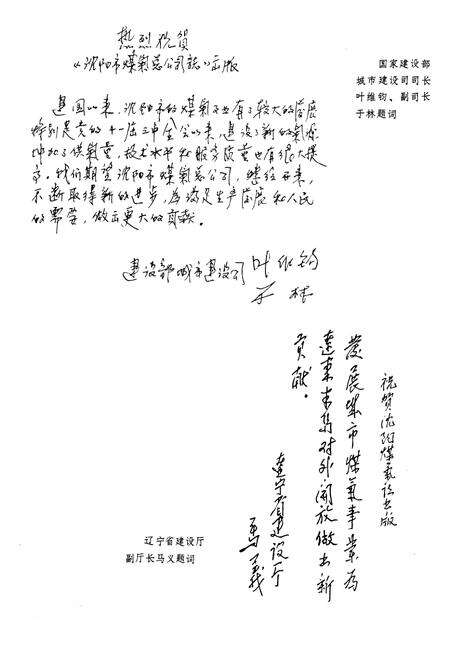 热烈祝贺
《沈阳市煤气总公司志》出版
国家建设部
城市建设司司长
叶维钧、副司长
于林题词
建国以来，沈阳市的煤气事业有了较大的发展
特别是党的十一届三中全会以来，建设了新的气源
增加了供气量，技术水平和服务质量也有很大提
高。我们期望沈阳市煤气总公司，继往开来，
不断取得新的进步，为满足生产发展和人民
的需要，做出更大的贡献。
建设部城市建设司 叶维钧
于林
祝贺沈阳煤气志出版
发展城市煤气事业为
辽东半岛对外开放做出新
贡献。
辽宁省建设厅
马义
辽宁省建设厅
副厅长马义题词